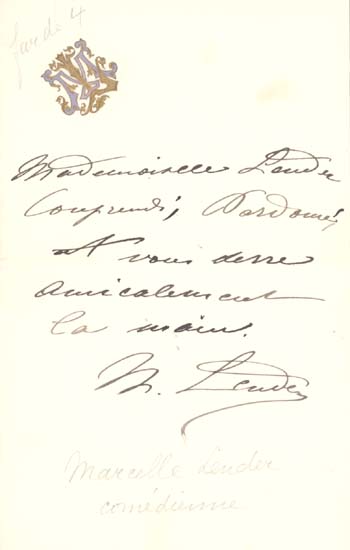 farde 4
Mademoiselle Lender
Comprend, Pardonne,
et vous serre
amicalement
la main.
M. Lender
Marcelle Lender
comédienne